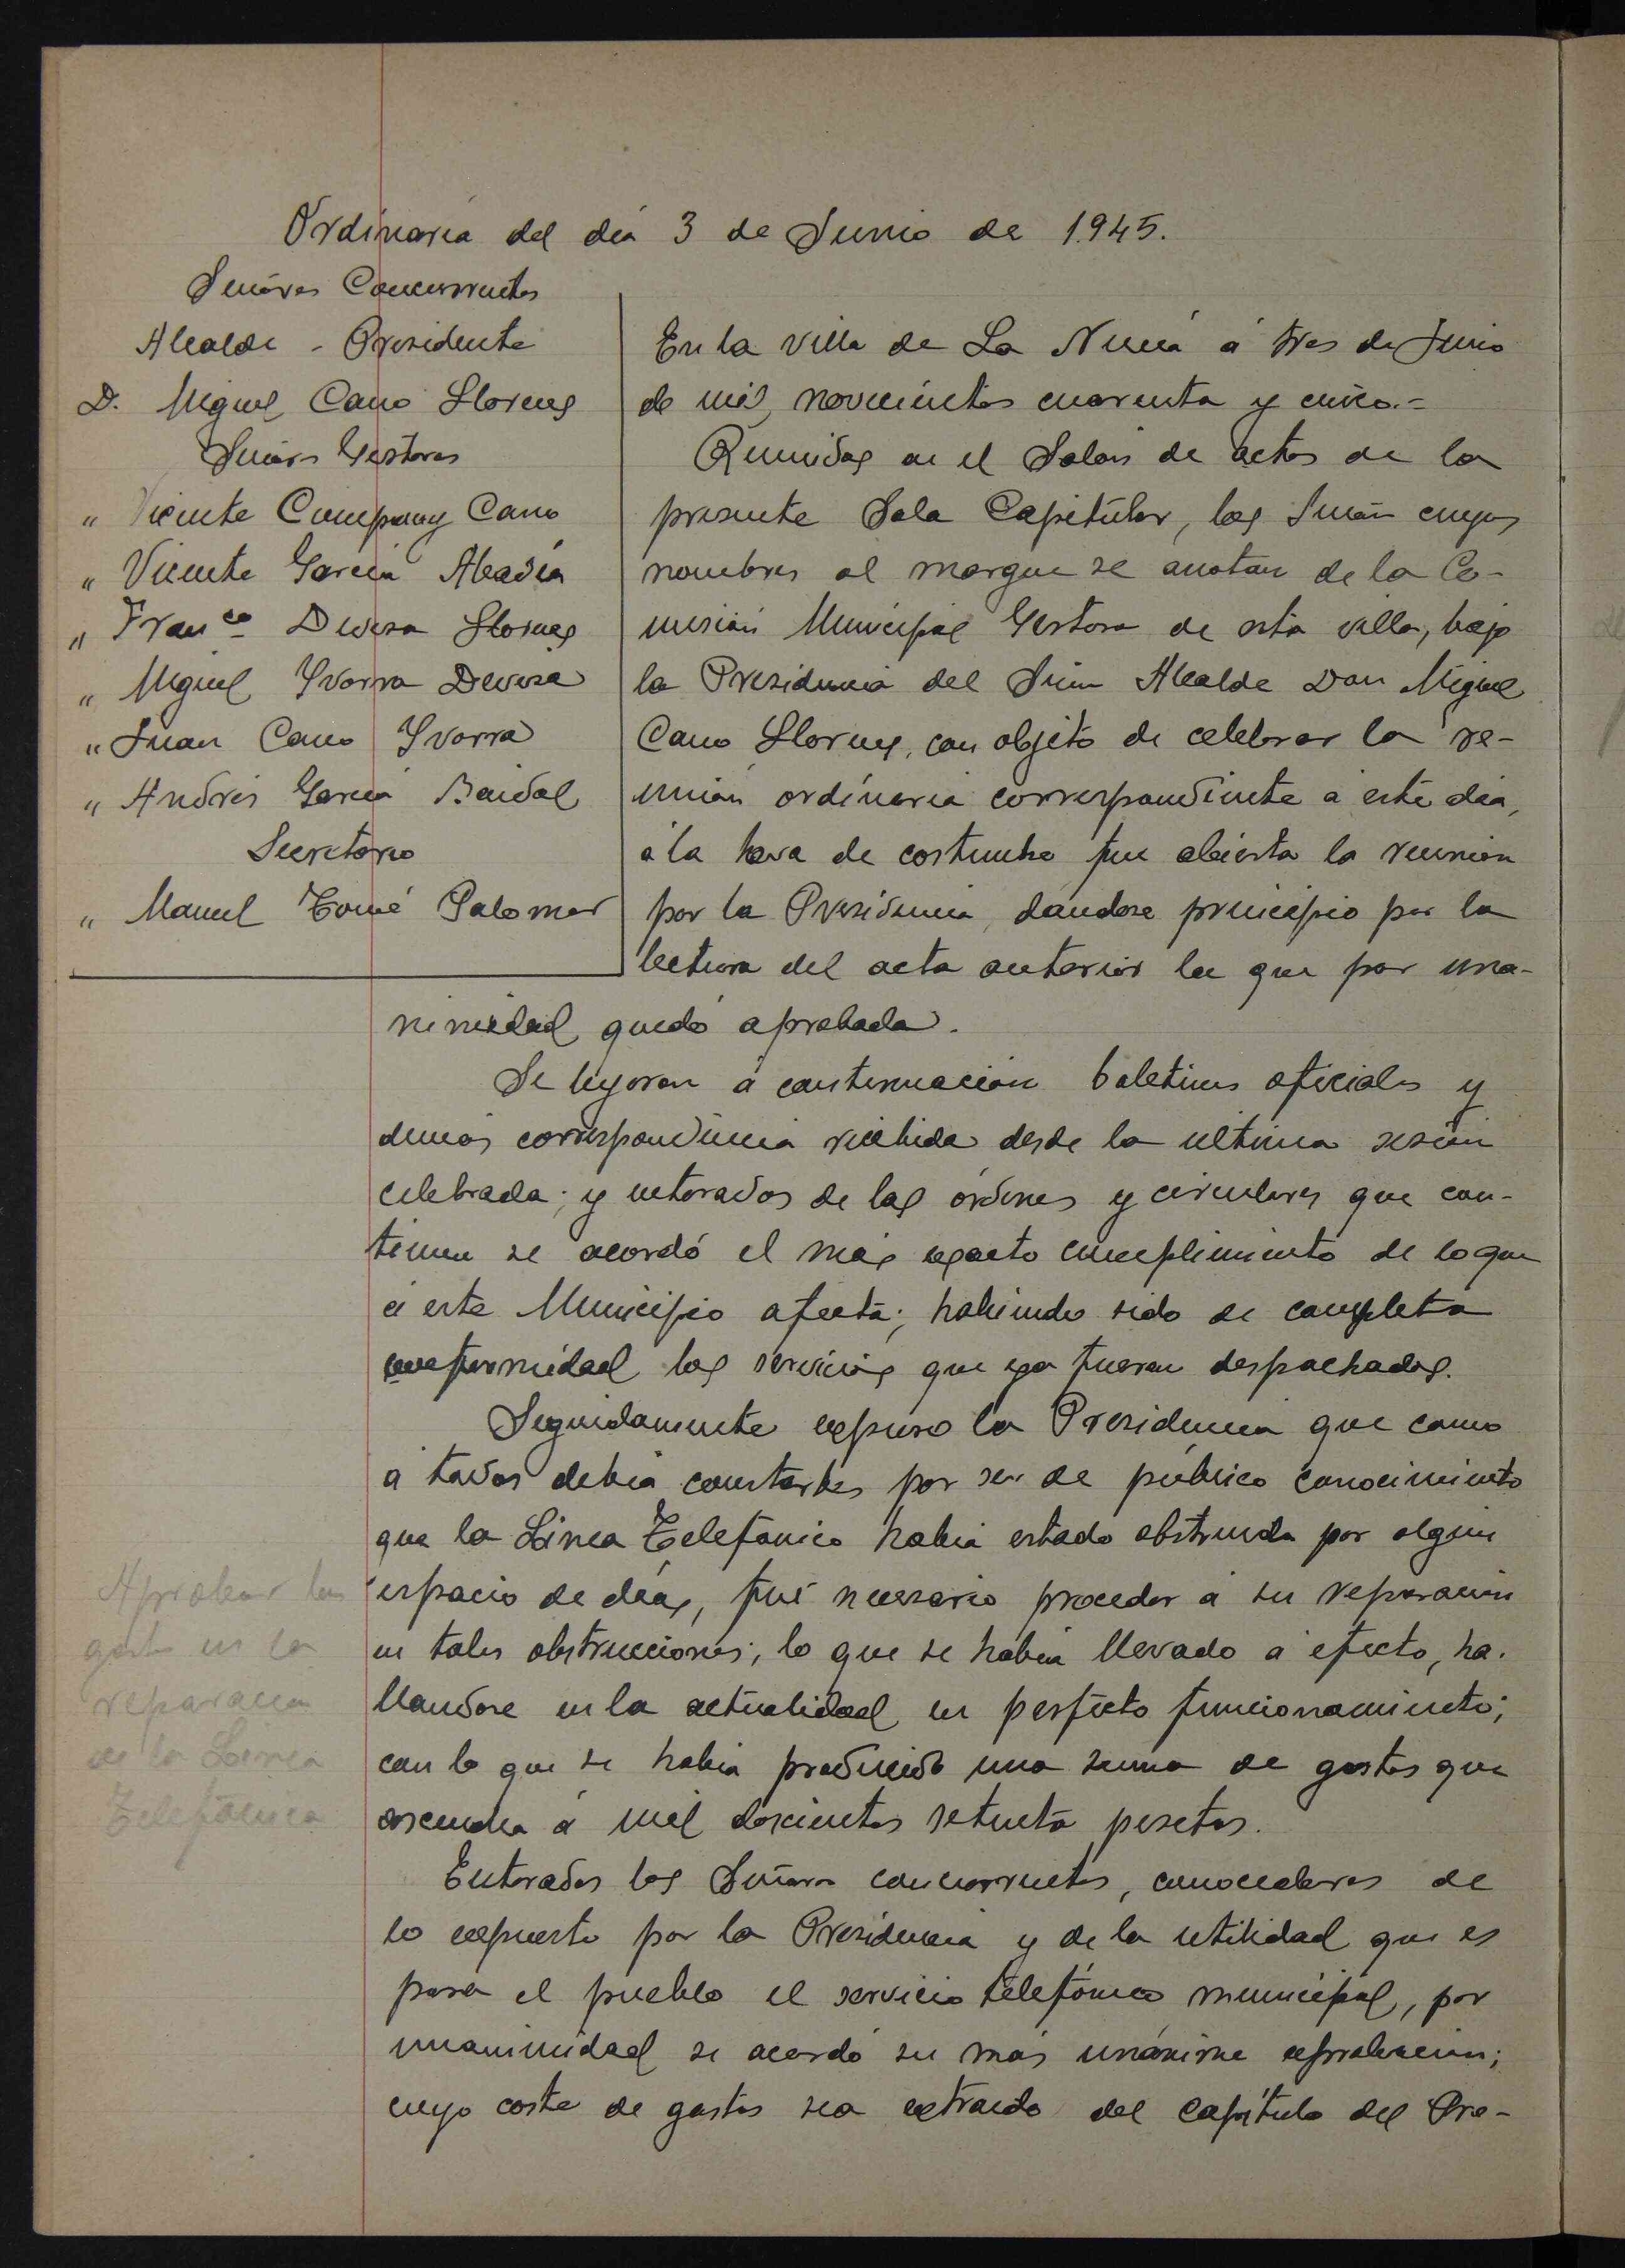 Ordinaria del día 3 de Junio de 1.945.
Señores Concurrentes
Alcalde - Presidente
D. Miguel Cano Llorens
Señores Gestores
" Vicente Company Cano
" Vicente García Abadía
" Fran.co Devesa Llorens
" Miguel Yvorra Devesa
" Juan Cano Yvorra
" Andrés García Baidal
Secretario
" Manuel Tomé Palomar
En la villa de La Nucía á tres de Junio
de mil novecientos cuarenta y cinco.=
Reunidos en el Salón de actos de la
presente Sala Capitular, los Señores cuyos
nombres al margen se anotan de la Co-
misión Municipal Gestora de esta villa, bajo
la Presidencia del Señor Alcalde Don Miguel
Cano Llorens, con objeto de celebrar la re-
unión ordinaria correspondiente a este día,
á la hora de costumbre fue abierta la reunión
por la Presidencia, dándose principio por la
lectura del acta anterior la que por una-
nimidad quedó aprobada.
Se leyeron á continuación boletines oficiales y
demás correspondencia recibida desde la ultima sesión
celebrada; y enterados de las órdenes y circulares que con-
tienen se acordó el más exacto cumplimiento de lo que
á este Municipio afecta; habiendo sido de completa
conformidad los servicios que ya fueran despachados.
Seguidamente expuso la Presidencia que como
á todos debía constarles por ser de público conocimiento
que la Linea Telefónica había estado obstruida por algún
espacio de días, fué necesario proceder á su reparación
en tales obstrucciones; lo que se había llevado a efecto, ha-
llandose en la actualidad en perfecto funcionamiento;
con lo que se había producido una suma de gastos que
ascendía á mil doscientas setenta pesetas.
Enterados los Señores concurrentes, conocedores de
lo expuesto por la Presidencia y de la utilidad que es
para el pueblo el servicio telefónico municipal, por
unanimidad se acordó su más unánime aprobación;
cuyo coste de gastos sea extraído del capítulo del Pre-
Aprobar los
gastos en la
reparación
de la Linea
Telefónica